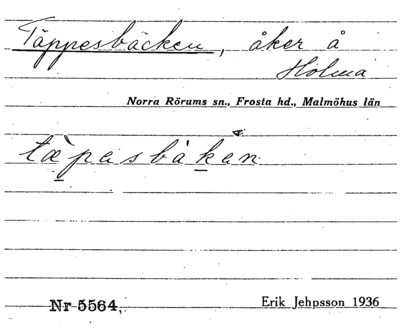 Täppesbäcken, åker å
Holma
Norra Rörums sn., Frosta hd., Malmöhus län
Nr 5564,
Erik Jehpsson 1936